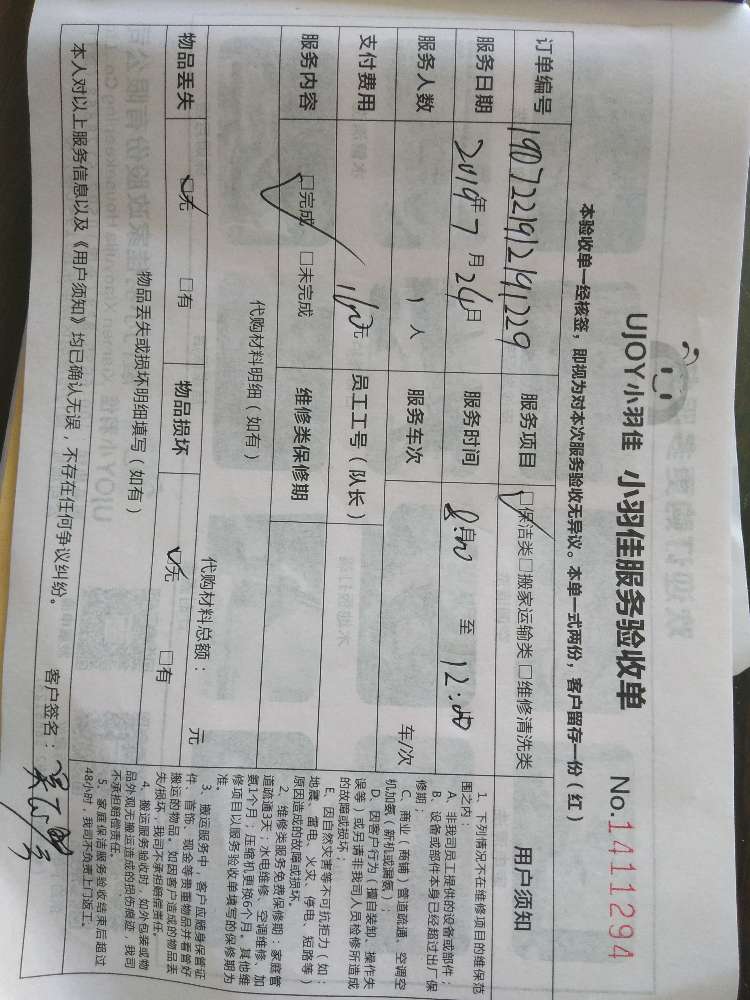 UJOY小羽佳 小羽佳服务验收单 No.1411294
本验收单一经核签，即视为对本次服务验收无异议。本单一式两份，客户留存一份（红）
订单编号 1907221912191229 服务项目 □保洁类□搬家运输类□维修清洗类
服务日期 2019年7月24日 服务时间 8:00 至 12:00
服务人数 1人 服务车次 车/次
支付费用 元 员工工号（队长）
服务内容 □完成 □未完成 维修类保修期
代购材料明细（如有） 代购材料总额： 元
物品丢失 □无 □有 物品损坏 □无 □有
物品丢失或损坏明细填写（如有）
本人对以上服务信息以及《用户须知》均已确认无误，不存在任何争议纠纷。 客户签名：
用户须知
1、下列情况不在维修项目的维保范
围之内：
A、非我司员工提供的设备或部件；
B、设备或部件本身已经超过出厂保
修期；
C、商业（商铺）管道疏通、空调空
机加氨（新机或漏氨）；
D、因客户行为（擅自装卸、操作失
误等）或另请非我司人员检修所造成
的故障或损坏；
E、因自然灾害等不可抗拒力（如：
地震、雷电、火灾、停电、短路等）
原因造成的故障或损坏。
2、维修类服务免费保修期：家庭管
道疏通3天；水电维修、空调维修、加
氨1个月；压缩机更换6个月。其他维
修项目以服务验收单填写的保修期为
准。
3、搬运服务中，客户应随身保管证
件、首饰、现金等贵重物品并看管好
搬运的物品。如因客户造成的物品丢
失/损坏，我司不承担赔偿责任。
4、搬运服务验收时，如外包装或物
品外观无搬运造成的损伤痕迹，我司
不承担赔偿责任。
5、家庭保洁服务验收结束后超过
48小时，我司不负责上门返工。